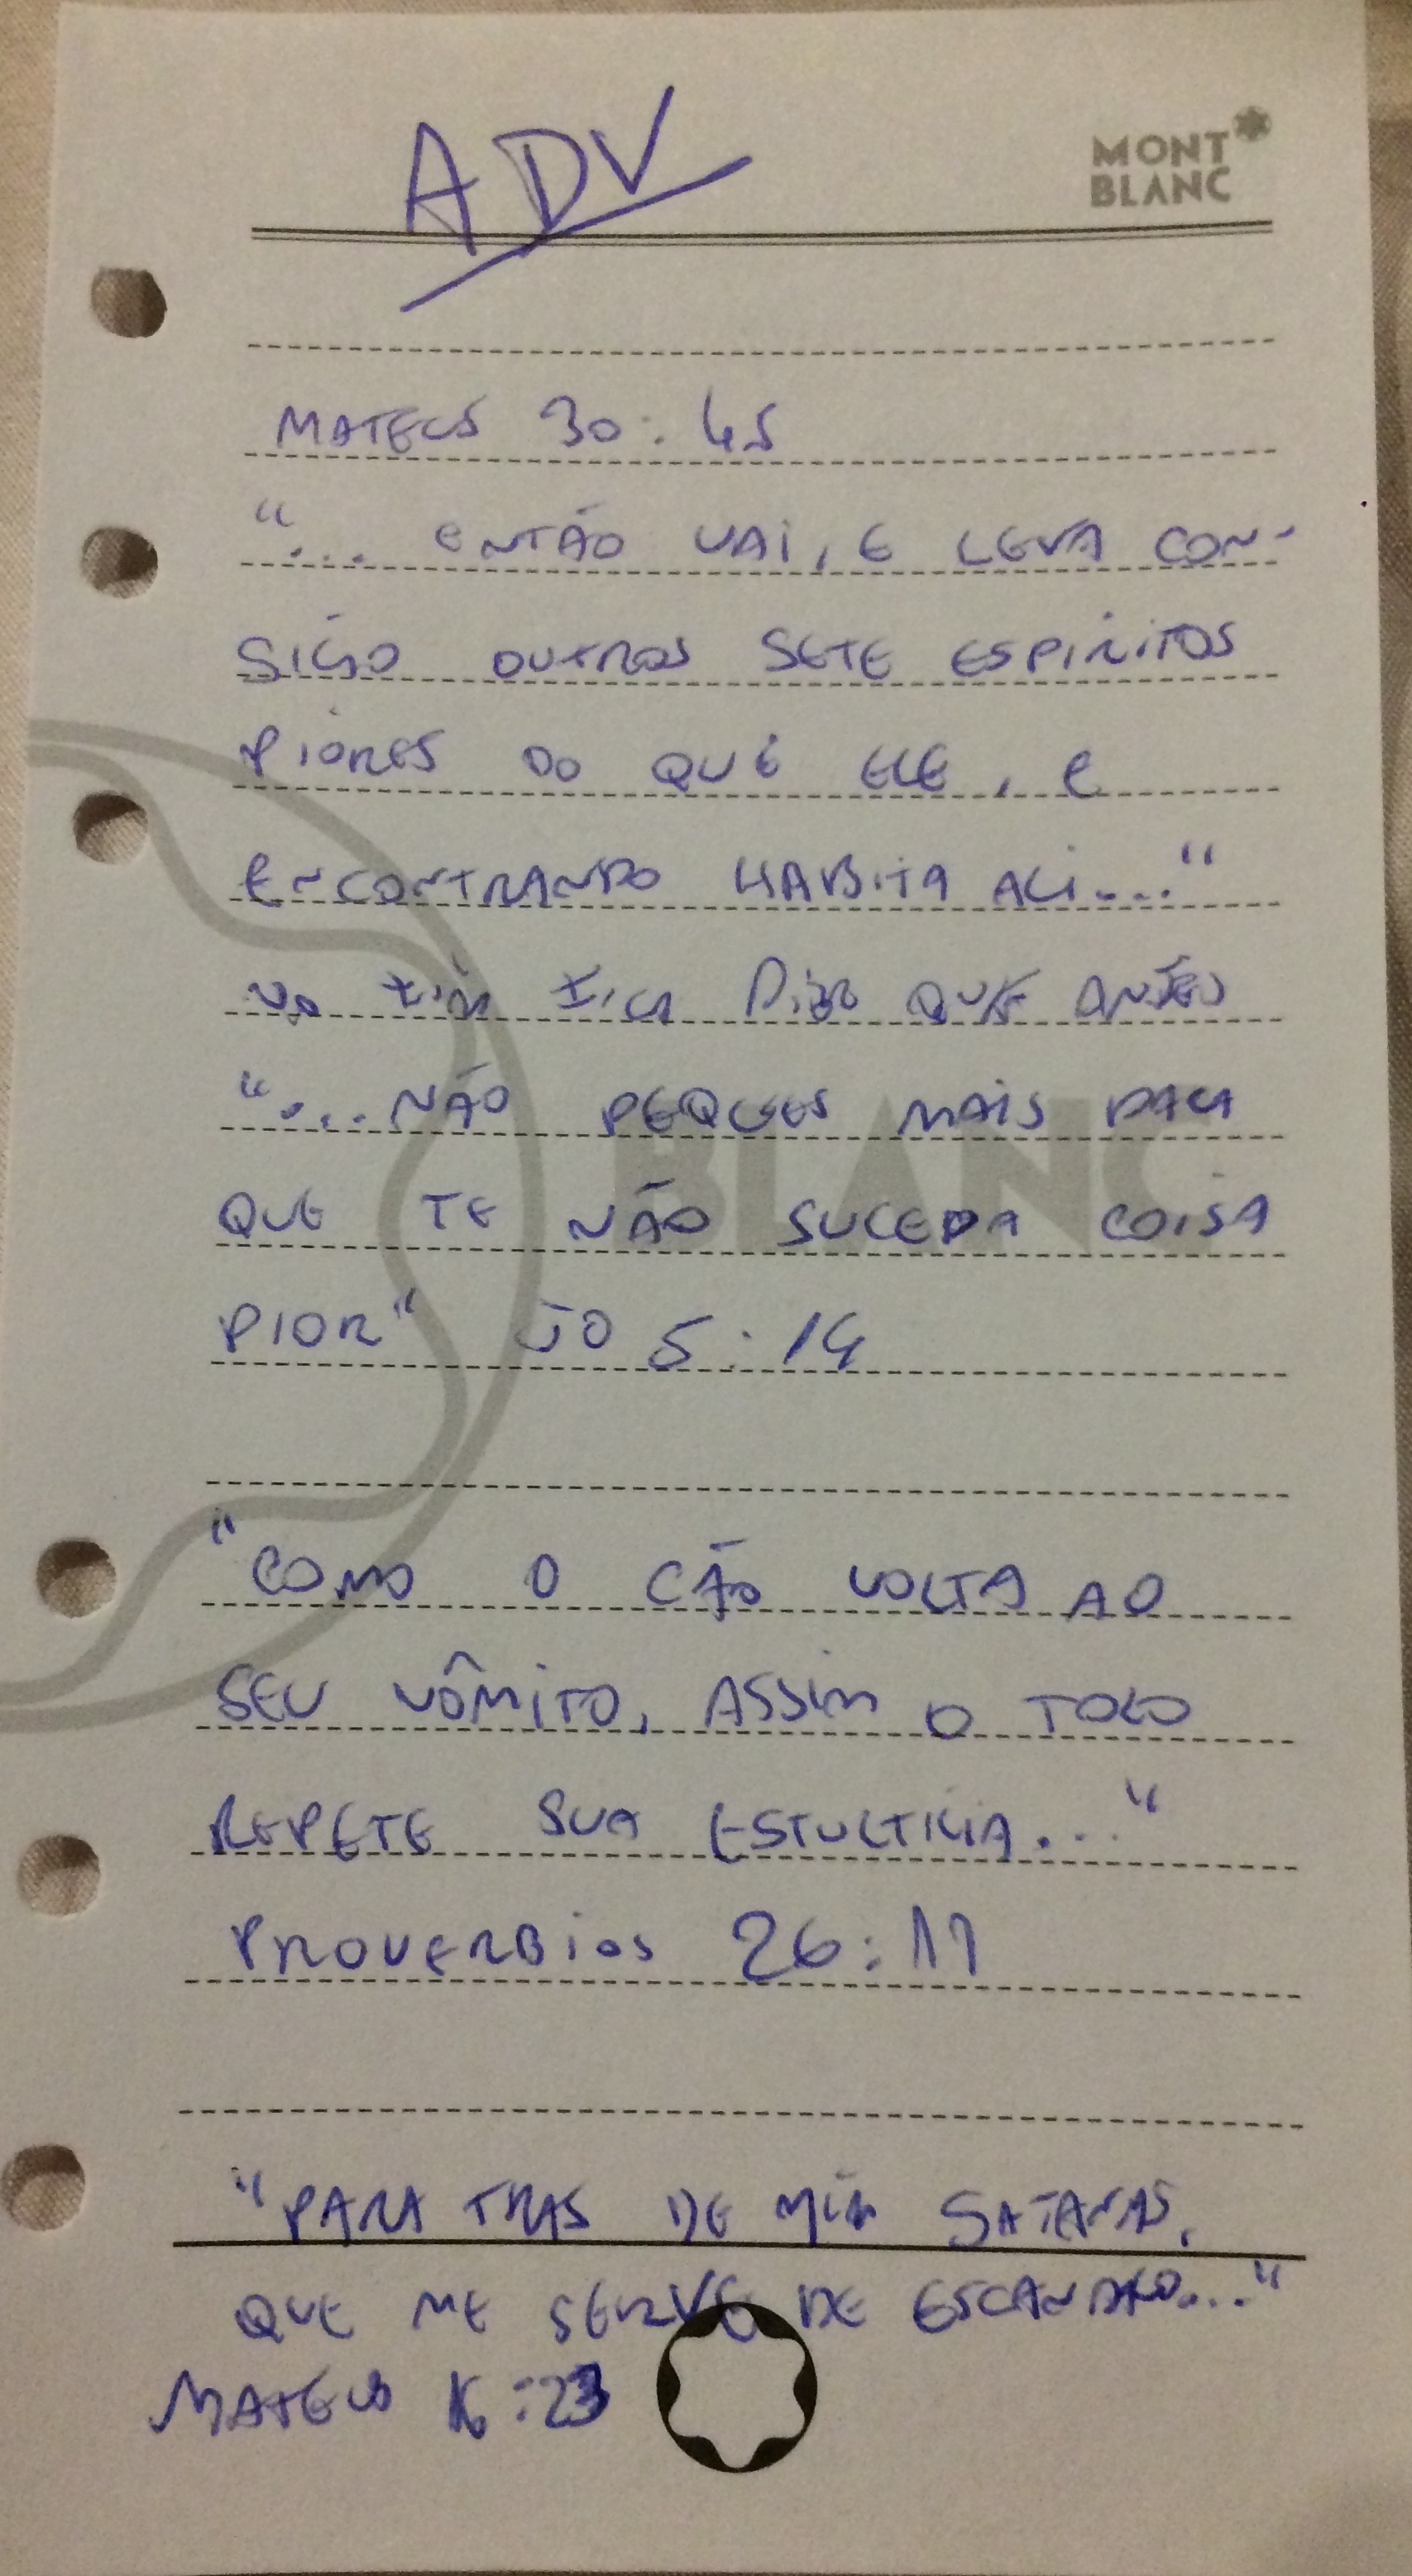 ADV
MONT
BLANC
MATEUS 30:45
"... ENTÃO VAI, E LEVA CON-
SIGO OUTROS SETE ESPÍRITOS
PIORES DO QUE ELE, E
ENCONTRANDO HABITA ALI..."
NO FIM FICA PIOR QUE ANTES
"...NÃO PEQUES MAIS PARA
QUE TE NÃO SUCEDA COISA
PIOR" JO 5:14
BLANC
"COMO O CÃO VOLTA AO
SEU VÔMITO, ASSIM O TOLO
REPETE SUA ESTULTICIA..."
PROVERBIOS 26:11
"PARA TRAS DE MIM SATANAS,
QUE ME SERVE DE ESCANDALO..."
MATEUS 16:23